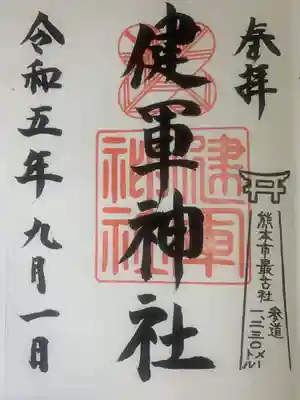 奉拝
健軍神社
建軍
神社
熊本市最古社
参道
一、二三〇メートル
令和五年九月一日